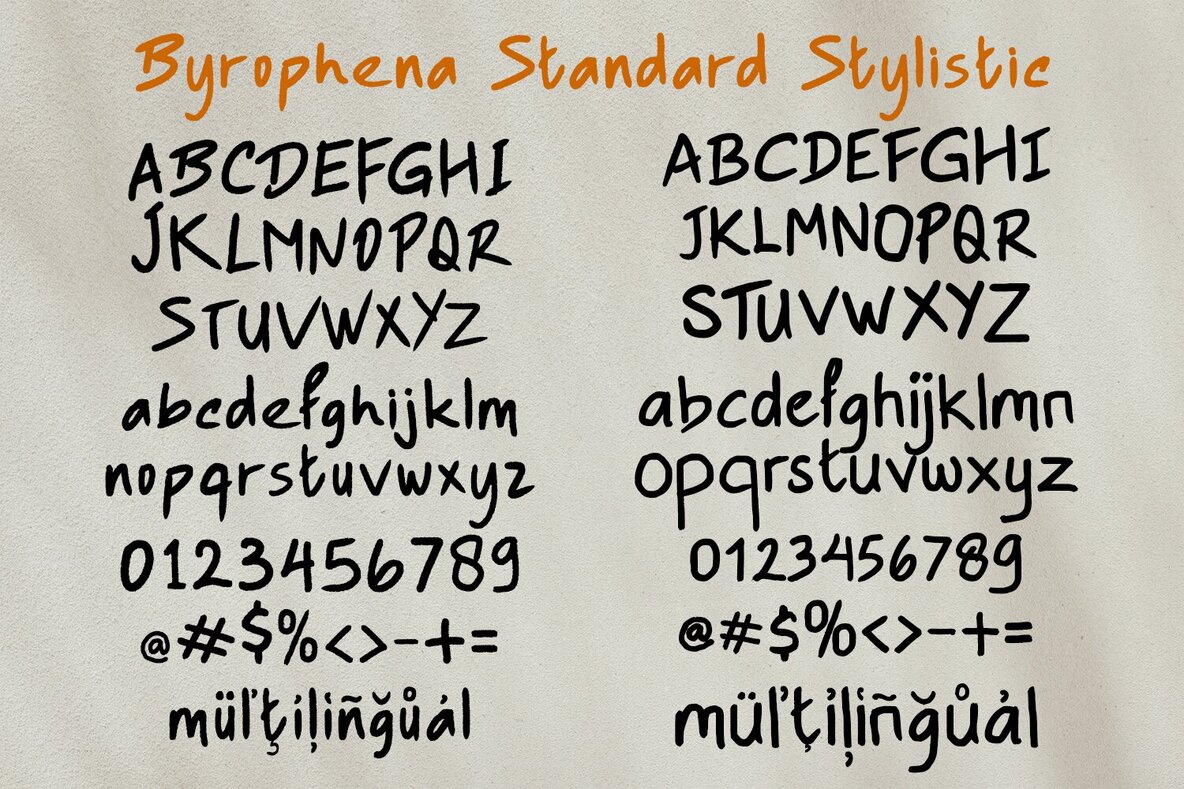 Byrophena Standard Stylistic
ABCDEFGHI
JKLMNOPQR
STUVWXYZ
abcdefghijklm
nopqrstuvwxyz
0123456789
@#$%<>-+=
müľţíļiñğůȧl
ABCDEFGHI
JKLMNOPQR
STUVWXYZ
abcdefghijklmn
opqrstuvwxyz
0123456789
@#$%<>-+=
müľţỉļiñğůȧl